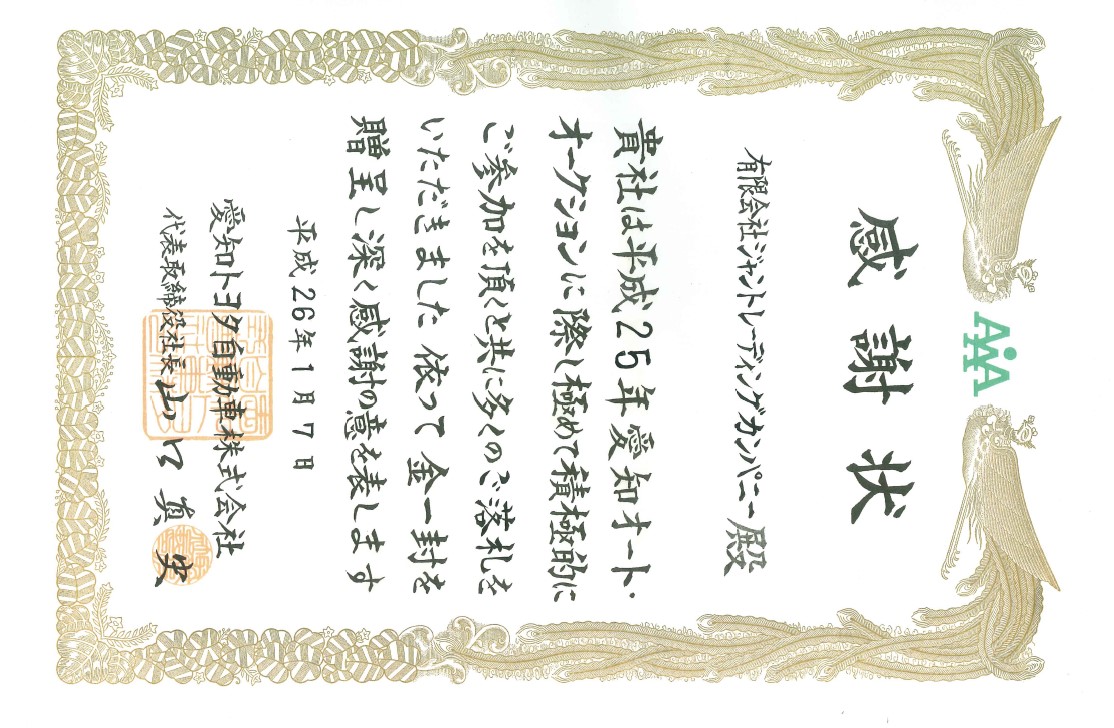 AiA
感謝状
有限会社ジャントレーディングカンパニー殿
貴社は平成25年愛知オート・
オークションに際し極めて積極的に
ご参加を頂くと共に多くのご落札を
いただきました 依って金一封を
贈呈し深く感謝の意を表します
平成26年1月7日
愛知トヨタ自動車株式会社
代表取締役社長 山口真史